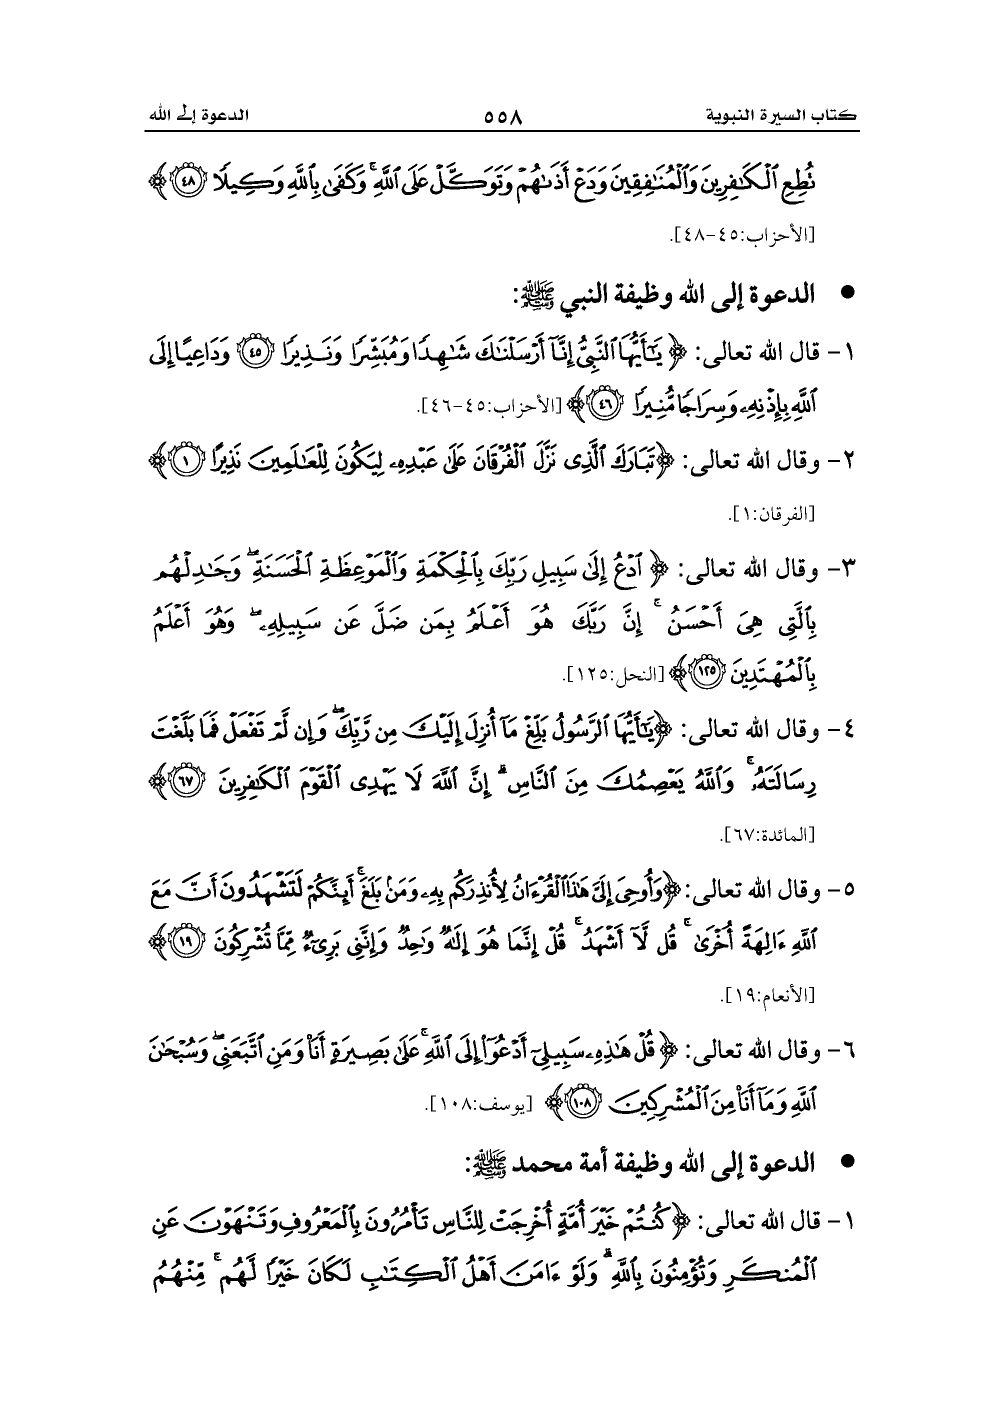 كتاب السيرة النبوية ٥٥٨ الدعوة إلى الله
تُطِعِ ٱلْكَٰفِرِينَ وَٱلْمُنَٰفِقِينَ وَدَعْ أَذَىٰهُمْ وَتَوَكَّلْ عَلَى ٱللَّهِ ۚ وَكَفَىٰ بِٱللَّهِ وَكِيلًا ﴿٤٨﴾ ﴾
[الأحزاب:٤٥-٤٨].
● الدعوة إلى الله وظيفة النبي ﷺ:
١- قال الله تعالى: ﴿ يَٰٓأَيُّهَا ٱلنَّبِىُّ إِنَّآ أَرْسَلْنَٰكَ شَٰهِدًا وَمُبَشِّرًا وَنَذِيرًا ﴿٤٥﴾ وَدَاعِيًا إِلَى
ٱللَّهِ بِإِذْنِهِۦ وَسِرَاجًا مُّنِيرًا ﴿٤٦﴾ ﴾ [الأحزاب:٤٥-٤٦].
٢- وقال الله تعالى: ﴿ تَبَارَكَ ٱلَّذِى نَزَّلَ ٱلْفُرْقَانَ عَلَىٰ عَبْدِهِۦ لِيَكُونَ لِلْعَٰلَمِينَ نَذِيرًا ﴿١﴾ ﴾
[الفرقان:١].
٣- وقال الله تعالى: ﴿ ٱدْعُ إِلَىٰ سَبِيلِ رَبِّكَ بِٱلْحِكْمَةِ وَٱلْمَوْعِظَةِ ٱلْحَسَنَةِ ۖ وَجَٰدِلْهُم
بِٱلَّتِى هِىَ أَحْسَنُ ۚ إِنَّ رَبَّكَ هُوَ أَعْلَمُ بِمَن ضَلَّ عَن سَبِيلِهِۦ ۖ وَهُوَ أَعْلَمُ
بِٱلْمُهْتَدِينَ ﴿١٢٥﴾ ﴾ [النحل:١٢٥].
٤- وقال الله تعالى: ﴿ يَٰٓأَيُّهَا ٱلرَّسُولُ بَلِّغْ مَآ أُنزِلَ إِلَيْكَ مِن رَّبِّكَ ۖ وَإِن لَّمْ تَفْعَلْ فَمَا بَلَّغْتَ
رِسَالَتَهُۥ ۚ وَٱللَّهُ يَعْصِمُكَ مِنَ ٱلنَّاسِ ۗ إِنَّ ٱللَّهَ لَا يَهْدِى ٱلْقَوْمَ ٱلْكَٰفِرِينَ ﴿٦٧﴾ ﴾
[المائدة:٦٧].
٥- وقال الله تعالى: ﴿ وَأُوحِىَ إِلَىَّ هَٰذَا ٱلْقُرْءَانُ لِأُنذِرَكُم بِهِۦ وَمَنۢ بَلَغَ ۚ أَئِنَّكُمْ لَتَشْهَدُونَ أَنَّ مَعَ
ٱللَّهِ ءَالِهَةً أُخْرَىٰ ۚ قُل لَّآ أَشْهَدُ ۚ قُلْ إِنَّمَا هُوَ إِلَٰهٌ وَٰحِدٌ وَإِنَّنِى بَرِىٓءٌ مِّمَّا تُشْرِكُونَ ﴿١٩﴾ ﴾
[الأنعام:١٩].
٦- وقال الله تعالى: ﴿ قُلْ هَٰذِهِۦ سَبِيلِىٓ أَدْعُوٓا۟ إِلَى ٱللَّهِ ۚ عَلَىٰ بَصِيرَةٍ أَنَا۠ وَمَنِ ٱتَّبَعَنِى ۖ وَسُبْحَٰنَ
ٱللَّهِ وَمَآ أَنَا۠ مِنَ ٱلْمُشْرِكِينَ ﴿١٠٨﴾ ﴾ [يوسف:١٠٨].
● الدعوة إلى الله وظيفة أمة محمد ﷺ:
١- قال الله تعالى: ﴿ كُنتُمْ خَيْرَ أُمَّةٍ أُخْرِجَتْ لِلنَّاسِ تَأْمُرُونَ بِٱلْمَعْرُوفِ وَتَنْهَوْنَ عَنِ
ٱلْمُنكَرِ وَتُؤْمِنُونَ بِٱللَّهِ ۗ وَلَوْ ءَامَنَ أَهْلُ ٱلْكِتَٰبِ لَكَانَ خَيْرًا لَّهُم ۚ مِّنْهُمُ